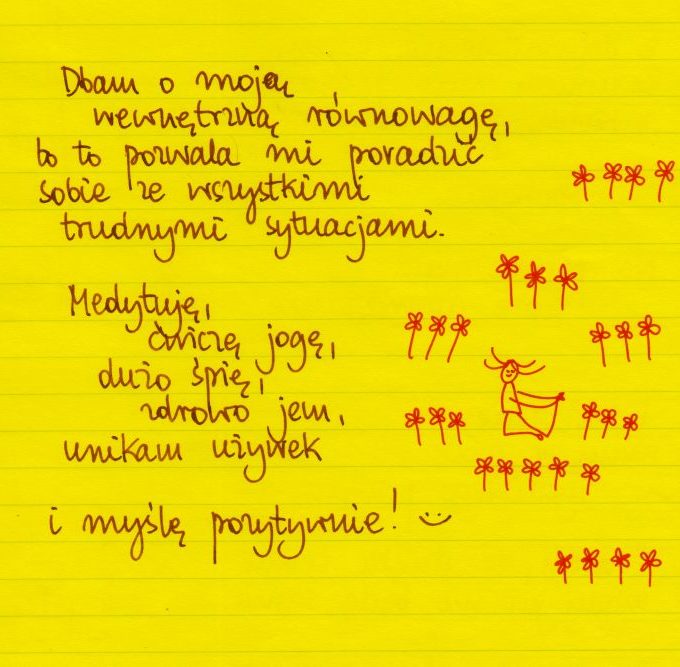 Dbam o moją
wewnętrzną równowagę,
bo to pozwala mi poradzić
sobie ze wszystkimi
trudnymi sytuacjami.
Medytuję,
ćwiczę jogę,
dużo śpię,
zdrowo jem,
unikam używek
i myślę pozytywnie! :)